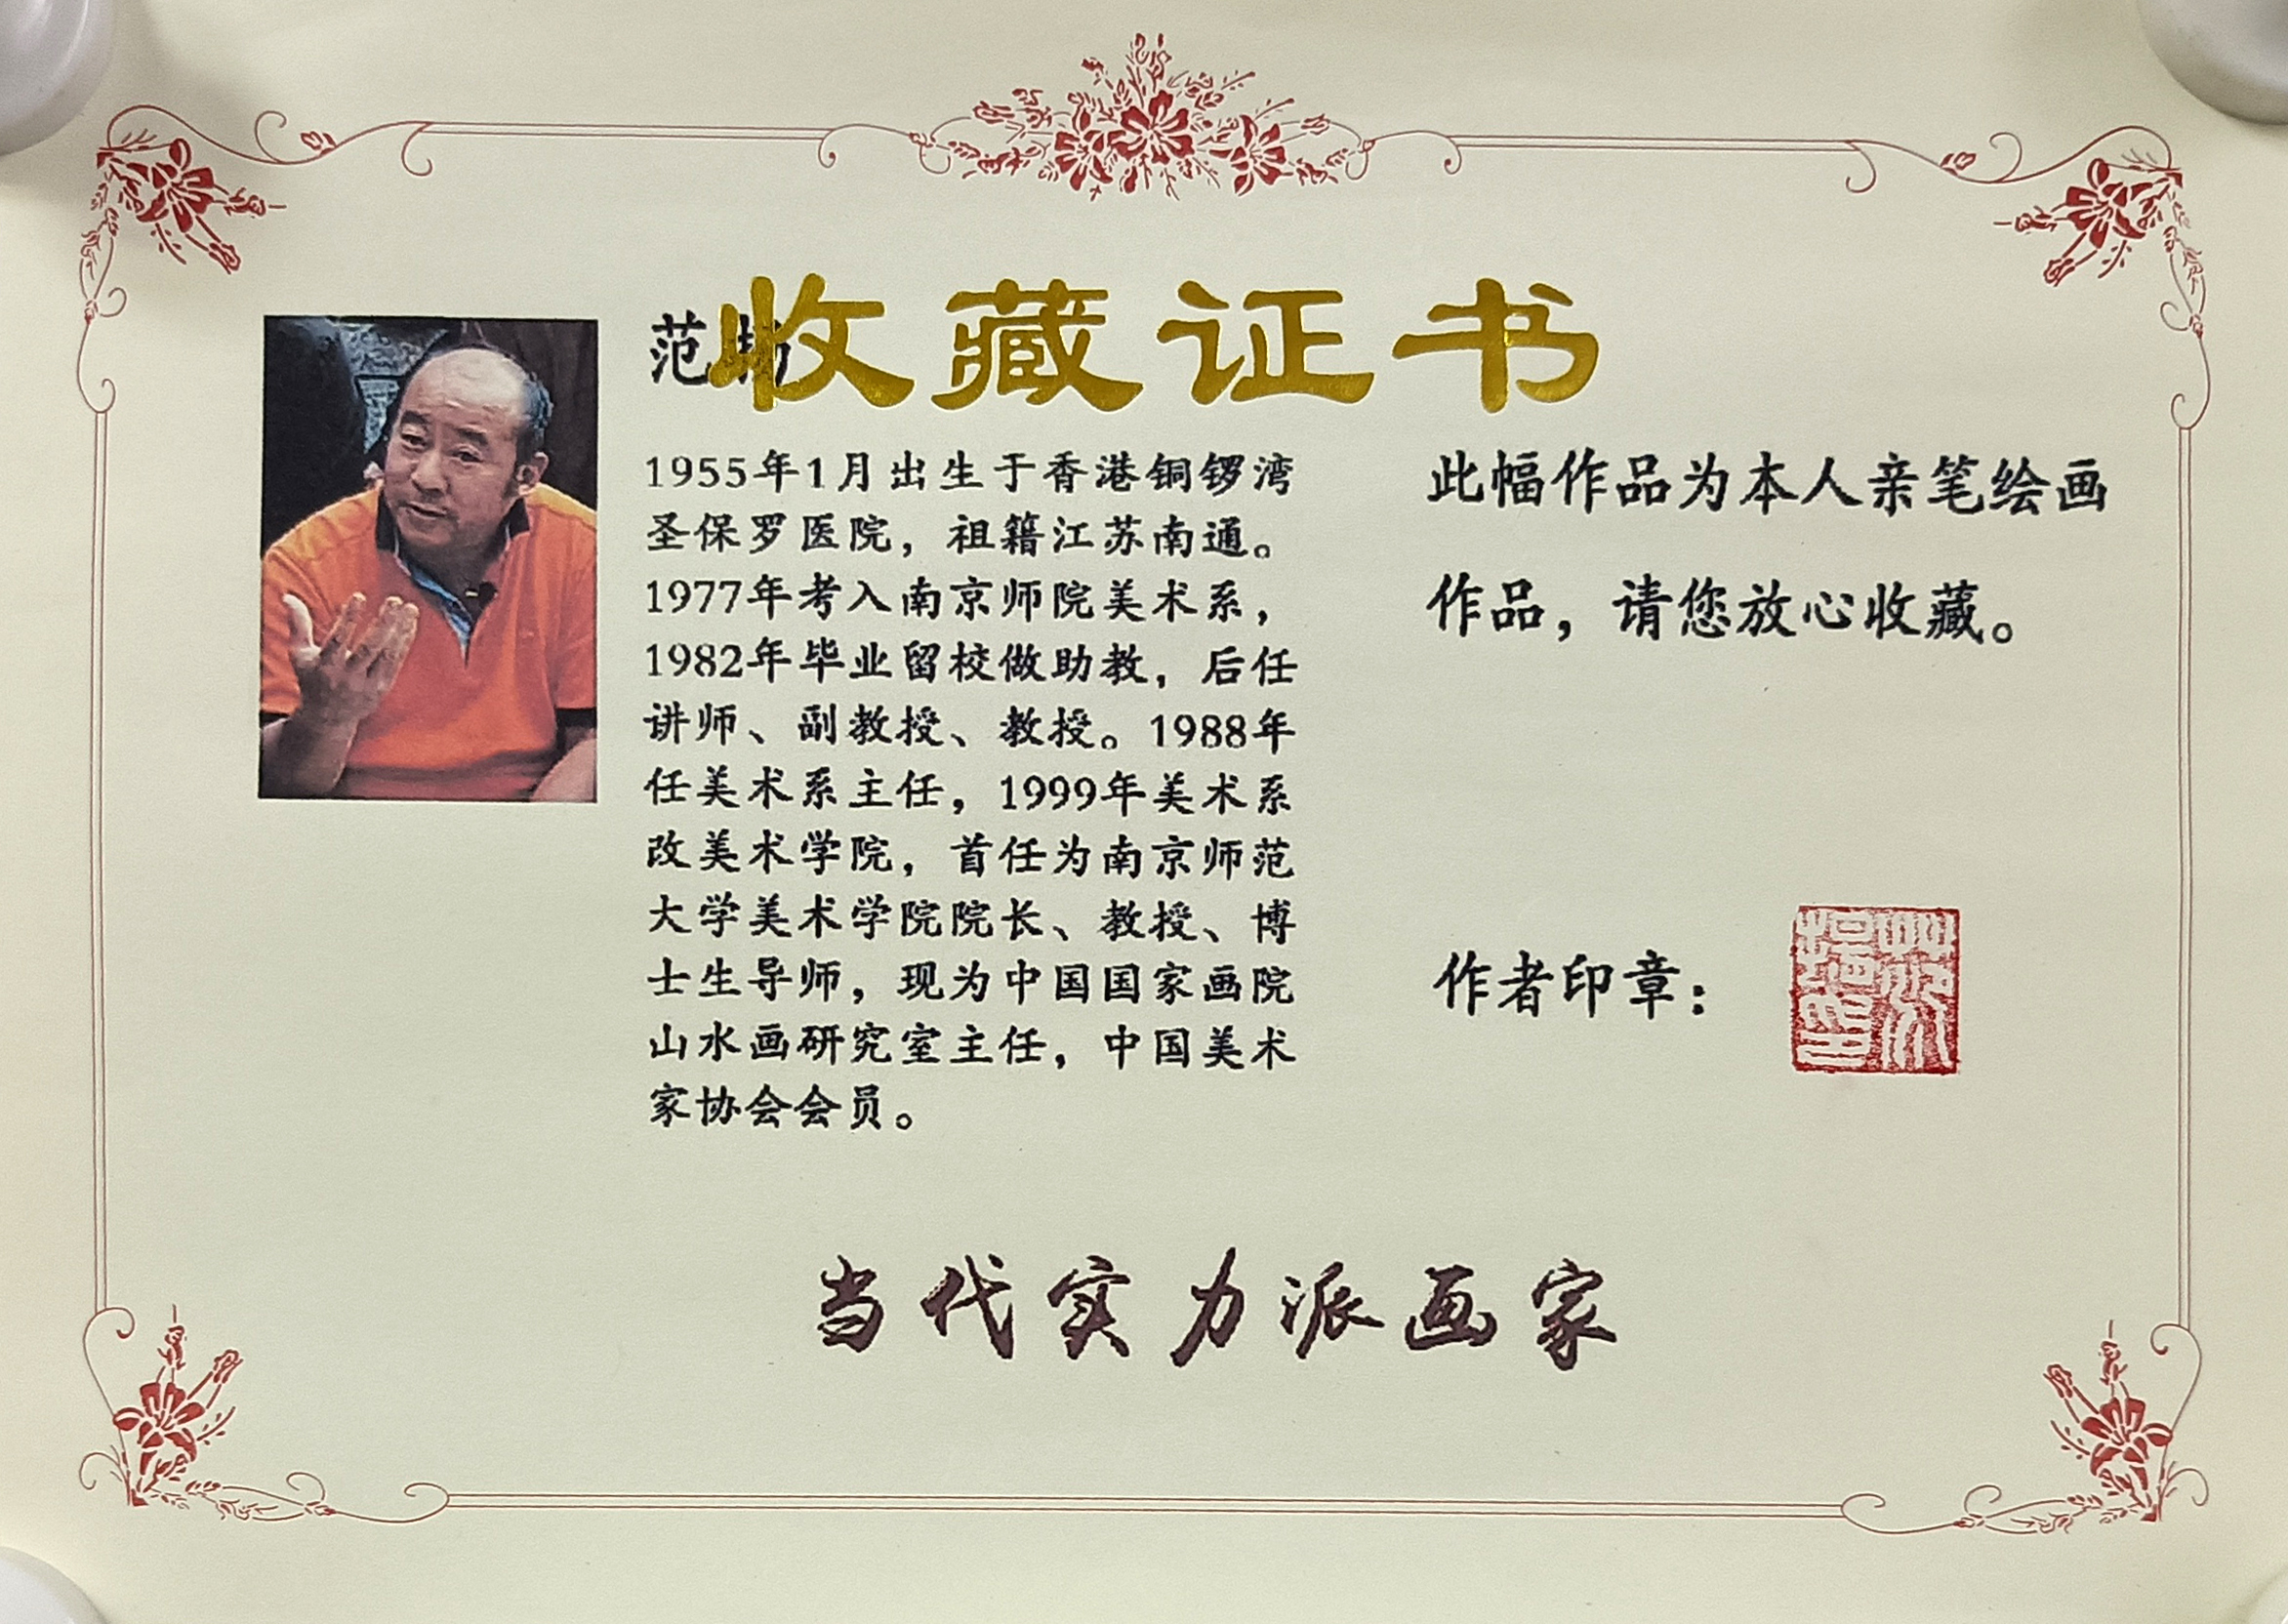 收藏证书
范扬
1955年1月出生于香港铜锣湾
圣保罗医院，祖籍江苏南通。
1977年考入南京师院美术系，
1982年毕业留校做助教，后任
讲师、副教授、教授。1988年
任美术系主任，1999年美术系
改美术学院，首任为南京师范
大学美术学院院长、教授、博
士生导师，现为中国国家画院
山水画研究室主任，中国美术
家协会会员。
此幅作品为本人亲笔绘画
作品，请您放心收藏。
作者印章：
当代实力派画家